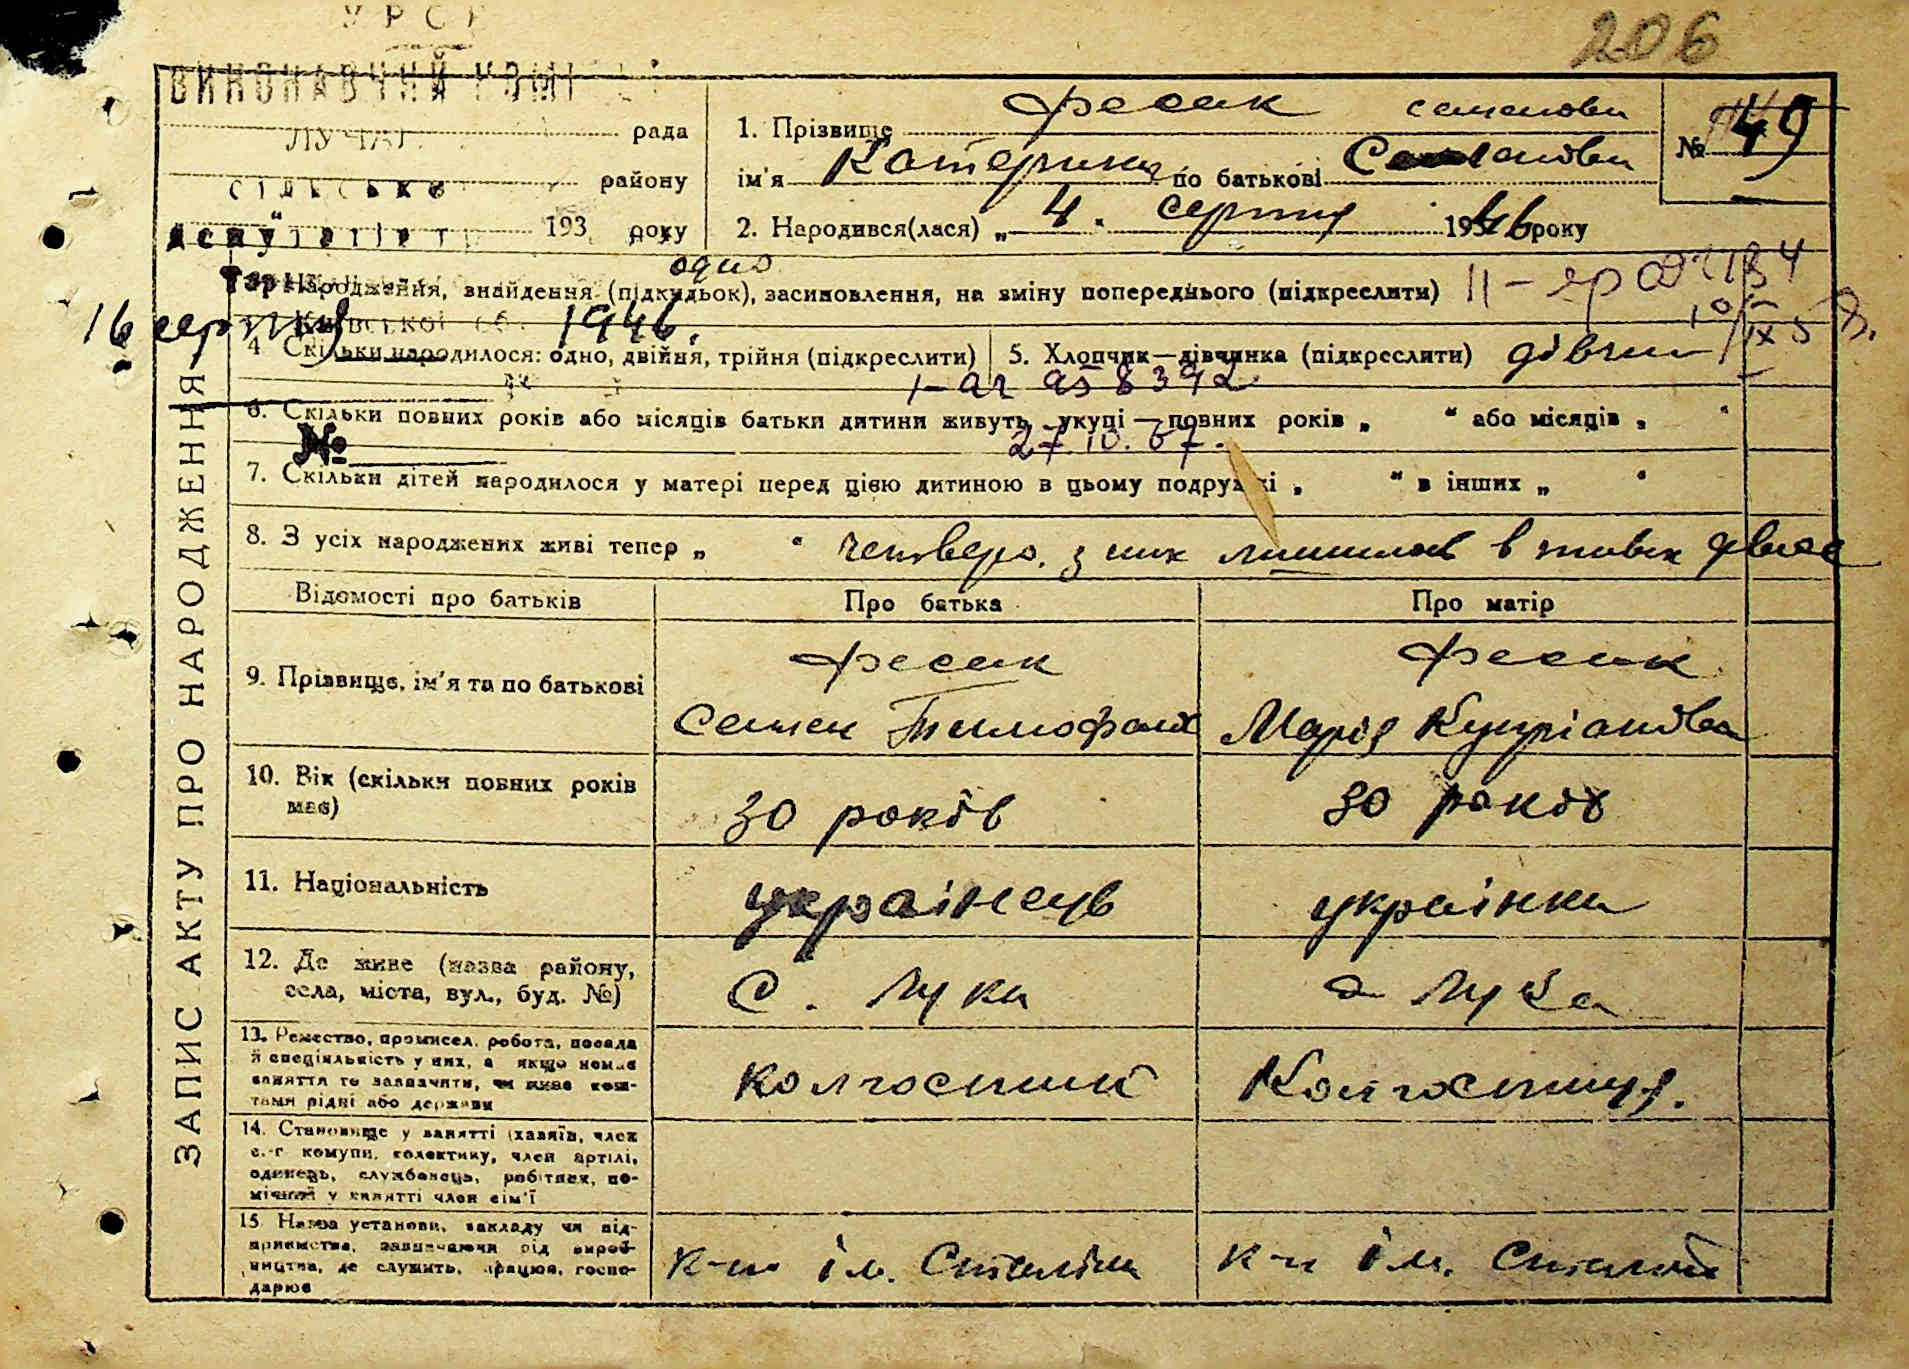 УРСР
206
ВИКОНАВЧИЙ КОМІ
ЛУЧАН. рада
сільсько району
депутатів 193 року
1. Прізвище Фесак семенови
ім'я Катерина по батькові Семановна
2. Народився(лася) „ 4. серпня 1946 року
№ 49
одно
Народження, знайдення (підкидьок), засиновлення, на зміну попереднього (підкреслити)
Київської об.
16 серпня 1946.
4 Скільки народилося: одно, двійня, трійня (підкреслити)
5. Хлопчик—дівчинка (підкреслити) дівчин
6. Скільки повних років або місяців батьки дитини живуть укупі — повних років „ “ або місяців „ “
№
27.10.67.
7. Скільки дітей народилося у матері перед цією дитиною в цьому подружжі „ “ в інших „ “
8. З усіх народжених живі тепер „ “ четверо. з них лишилось в живих двоє
Відомості про батьків Про батька Про матір
9. Прізвище, ім'я та по батькові
Фесак
Семен Тимофаів
Фесак
Марія Купріановна
10. Вік (скільки повних років має)
30 років
30 років
11. Національність
українець
українка
12. Де живе (назва району, села, міста, вул., буд. №)
С. Лука
с Лука
13. Ремество, промисел, робота, посада й спеціяльність у них, а якщо немає заняття то зазначити, чи живе коштами рідні або держави
колгоспник
Колгоспниця.
14. Становище у занятті (хазяїн, член с.-г комуни, колективу, член артілі, одинець, службовець, робітник, помічний у занятті член сім'ї
15. Назва установи, закладу чи підприємства, зазначаючи рід виробництва, де служить, працює, господарює
к-п ім. Сталіна
к-п ім. Сталіна
ЗАПИС АКТУ ПРО НАРОДЖЕННЯ